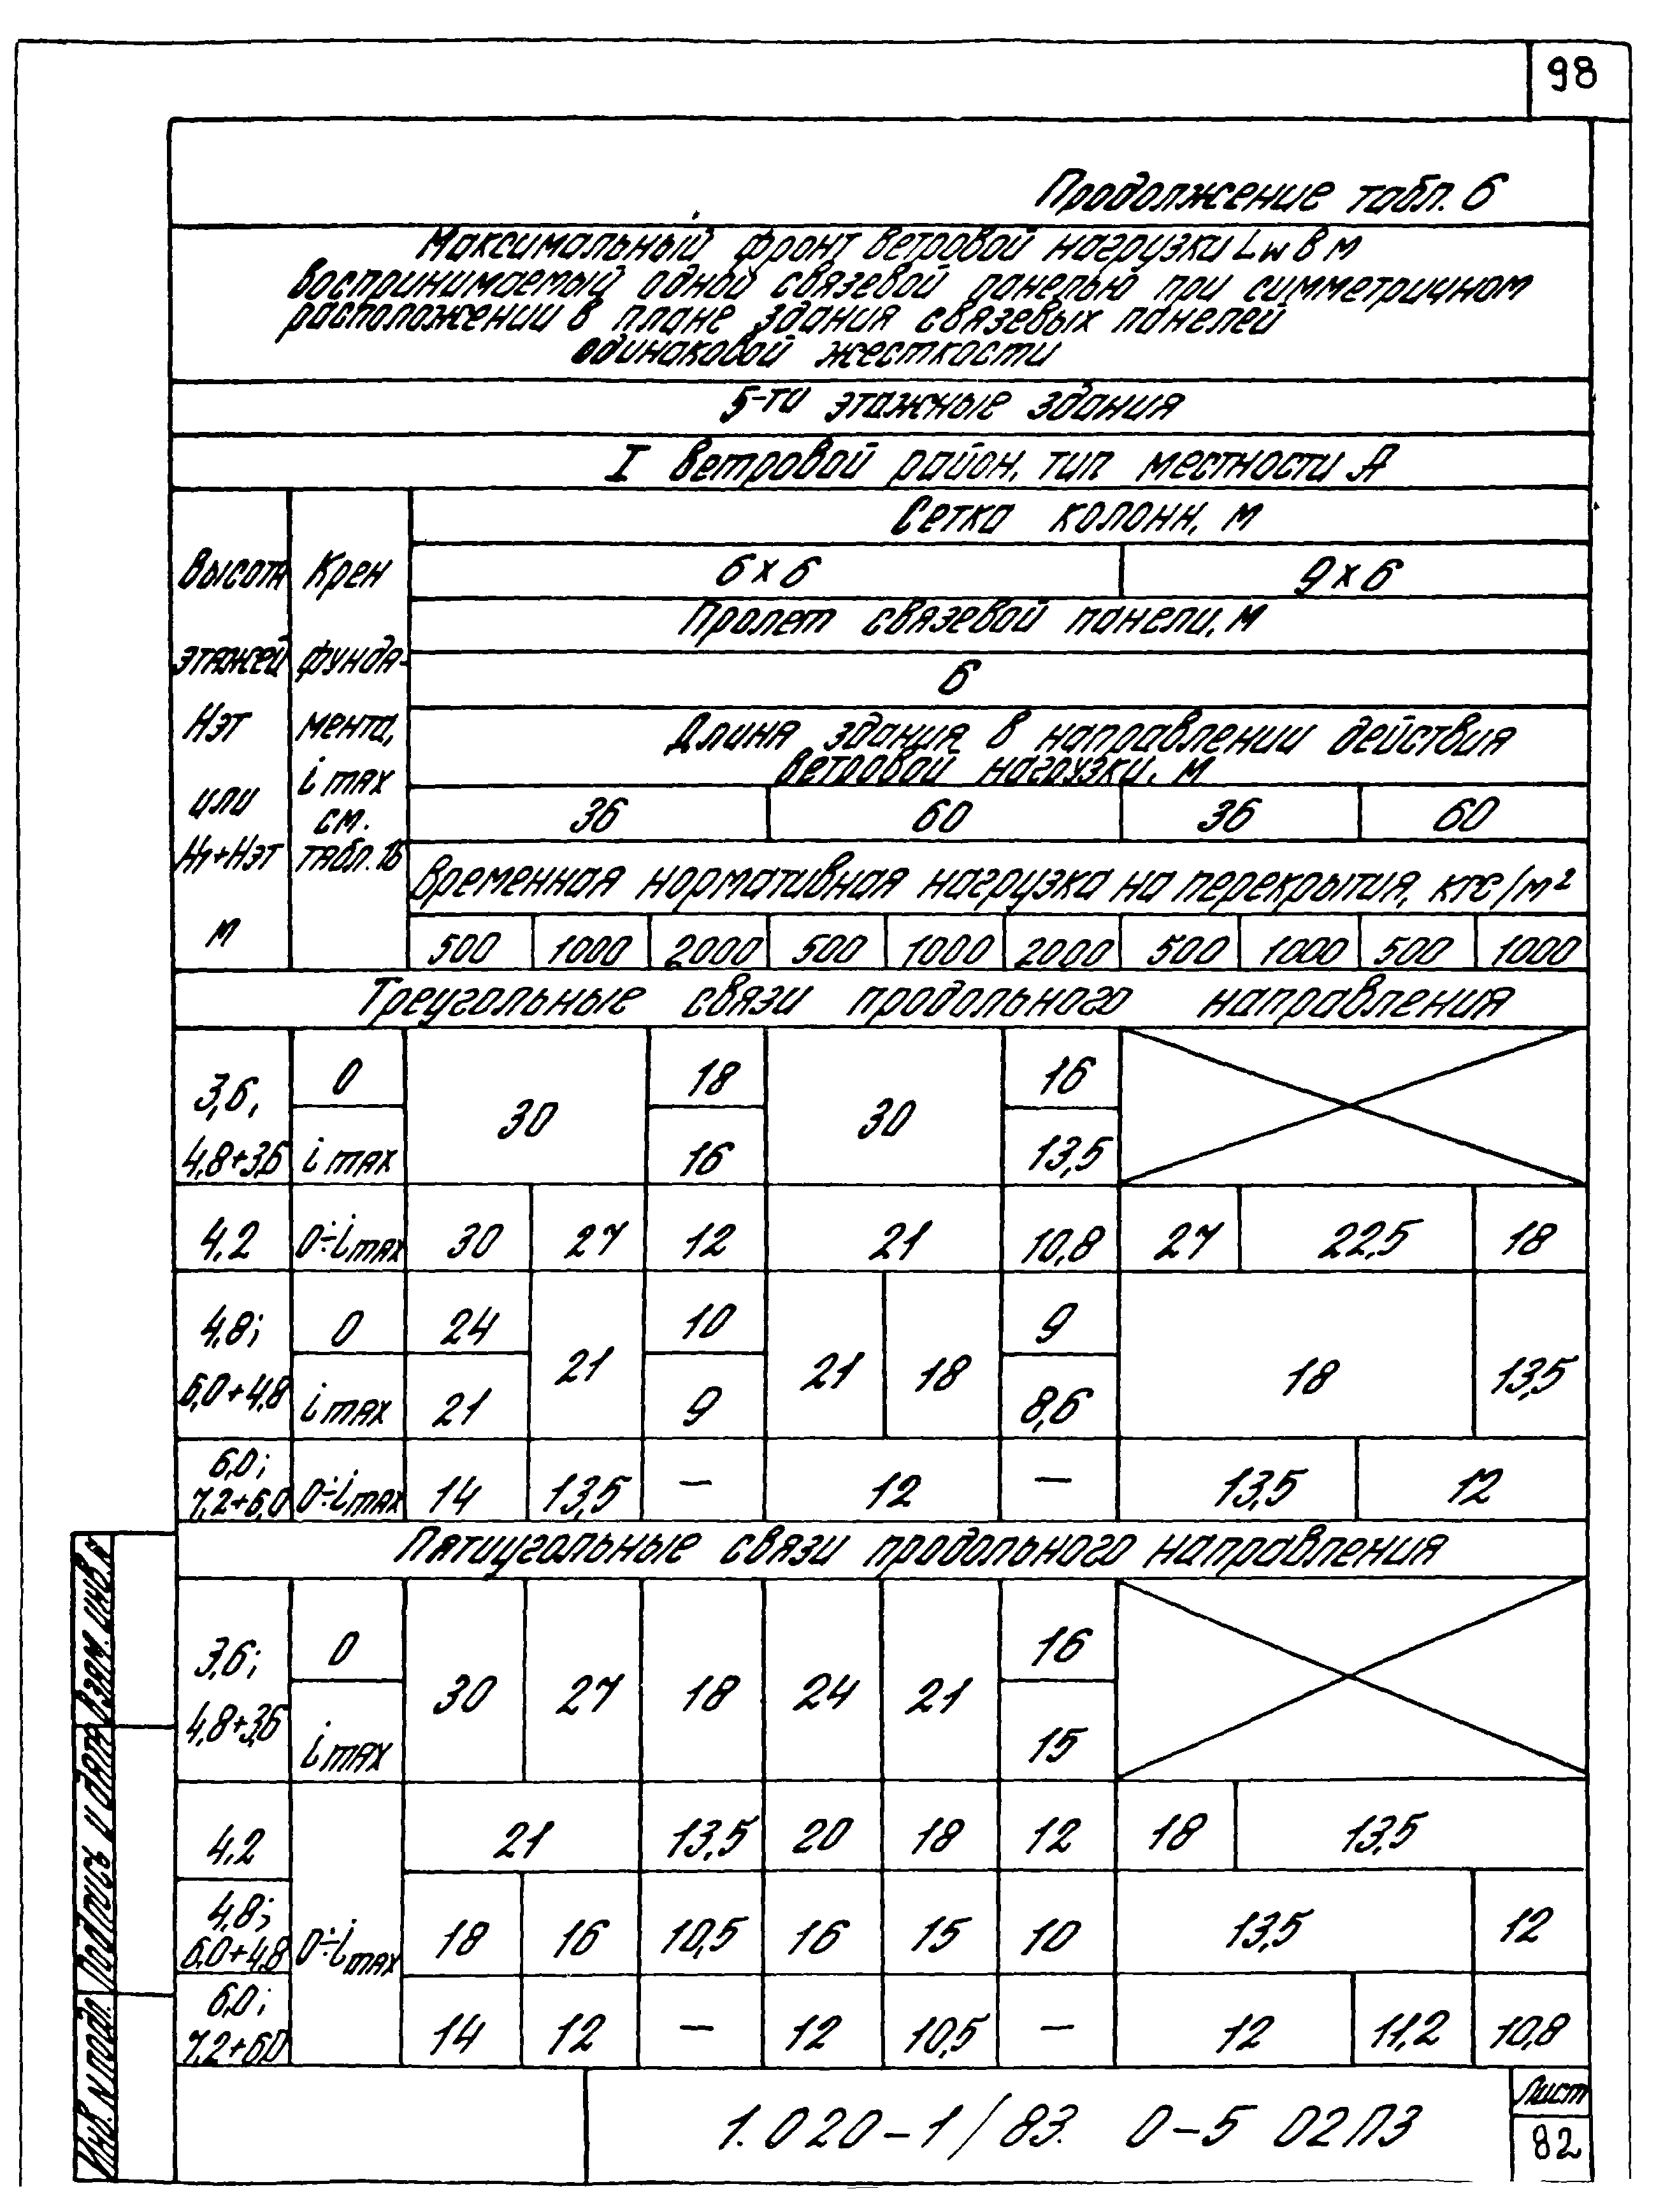 98
Продолжение табл. 6
Максимальный фронт ветровой нагрузки Lw в м
воспринимаемый одной связевой панелью при симметричном
расположении в плане здания связевых панелей
одинаковой жесткости
5-ти этажные здания
I ветровой район, тип местности А
Высота этажей Нэт или Н1+Нэт м
Крен фунда-мента, i max см. табл. 16
Сетка колонн, м
6х6 9х6
Пролет связевой панели, м
6
Длина здания в направлении действия
ветровой нагрузки, м
36 60 36 60
Временная нормативная нагрузка на перекрытия, кгс/м²
500 1000 2000 500 1000 2000 500 1000 500 1000
Треугольные связи продольного направления
3,6, 0 18 16
30 30
4,8+3,6 i max 16 13,5
4,2 0÷i max 30 27 12 21 10,8 27 22,5 18
4,8; 0 24 10 9
21 21 18 18 13,5
6,0+4,8 i max 21 9 8,6
6,0;
7,2+6,0 0÷i max 14 13,5 — 12 — 13,5 12
Пятиугольные связи продольного направления
3,6; 0 16
30 27 18 24 21
4,8+3,6 i max 15
4,2 21 13,5 20 18 12 18 13,5
4,8;
6,0+4,8 0÷i max 18 16 10,5 16 15 10 13,5 12
6,0;
7,2+6,0 14 12 — 12 10,5 — 12 11,2 10,8
1.020-1/83. 0-5 02ПЗ
Лист
82
Инв. N подл.
Подпись и дата
Взам. инв. N